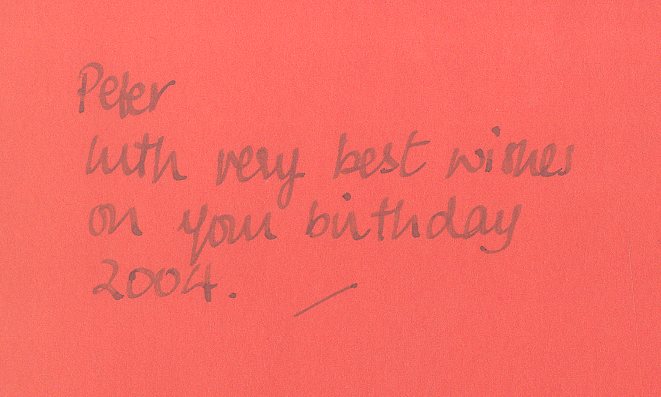 Peter
With very best wishes
on your birthday
2004.